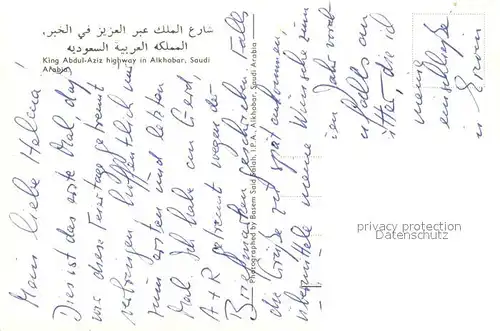 شارع الملك عبر العزيز في الخبر,
المملكه العربية السعوديه
King Abdul-Aziz highway in Alkhobar, Saudi
Arabia
Photographed by Basem Said Salah, I.P.A., Alkhobar, Saudi Arabia
Mein liebe Helena!
Dies ist das erste Mal, dass
wir diese Feiertage getrennt
verbringen, hoffentlich auch
zum ersten und letzten
Mal. Ich habe an Gerd,
A + R getrennt wegen der
Briefmarken geschrieben. Falls
die Grüße zu spät ankommen,
übermittele meine Wünsche zum
Jahr
falls an
die ich
meine
einschließe
Erwin
privacy protection
Datenschutz